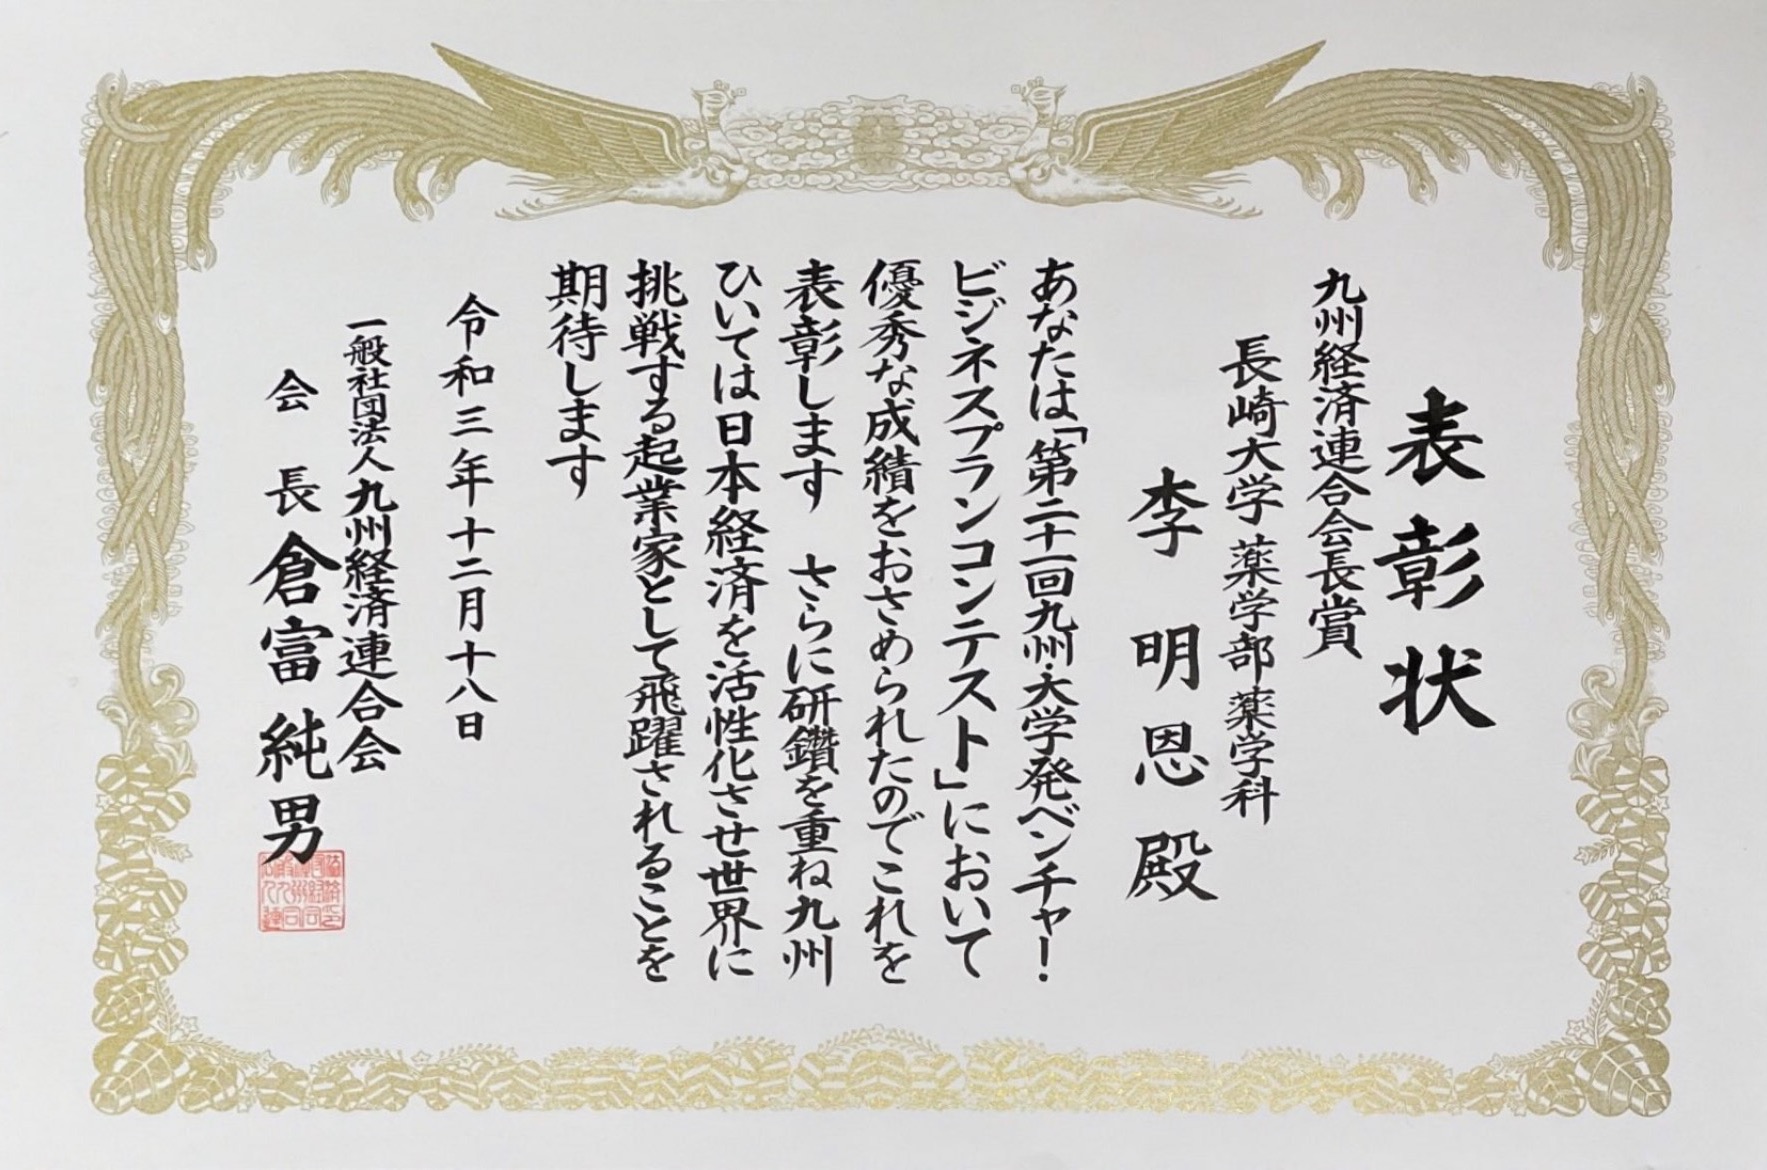 表彰状
九州経済連合会長賞
長崎大学 薬学部 薬学科
李明恩殿
あなたは「第二十一回九州・大学発ベンチャー
ビジネスプランコンテスト」において
優秀な成績をおさめられたのでこれを
表彰します さらに研鑽を重ね九州
ひいては日本経済を活性化させ世界に
挑戦する起業家として飛躍されることを
期待します
令和三年十二月十八日
一般社団法人九州経済連合会
会長 倉富純男